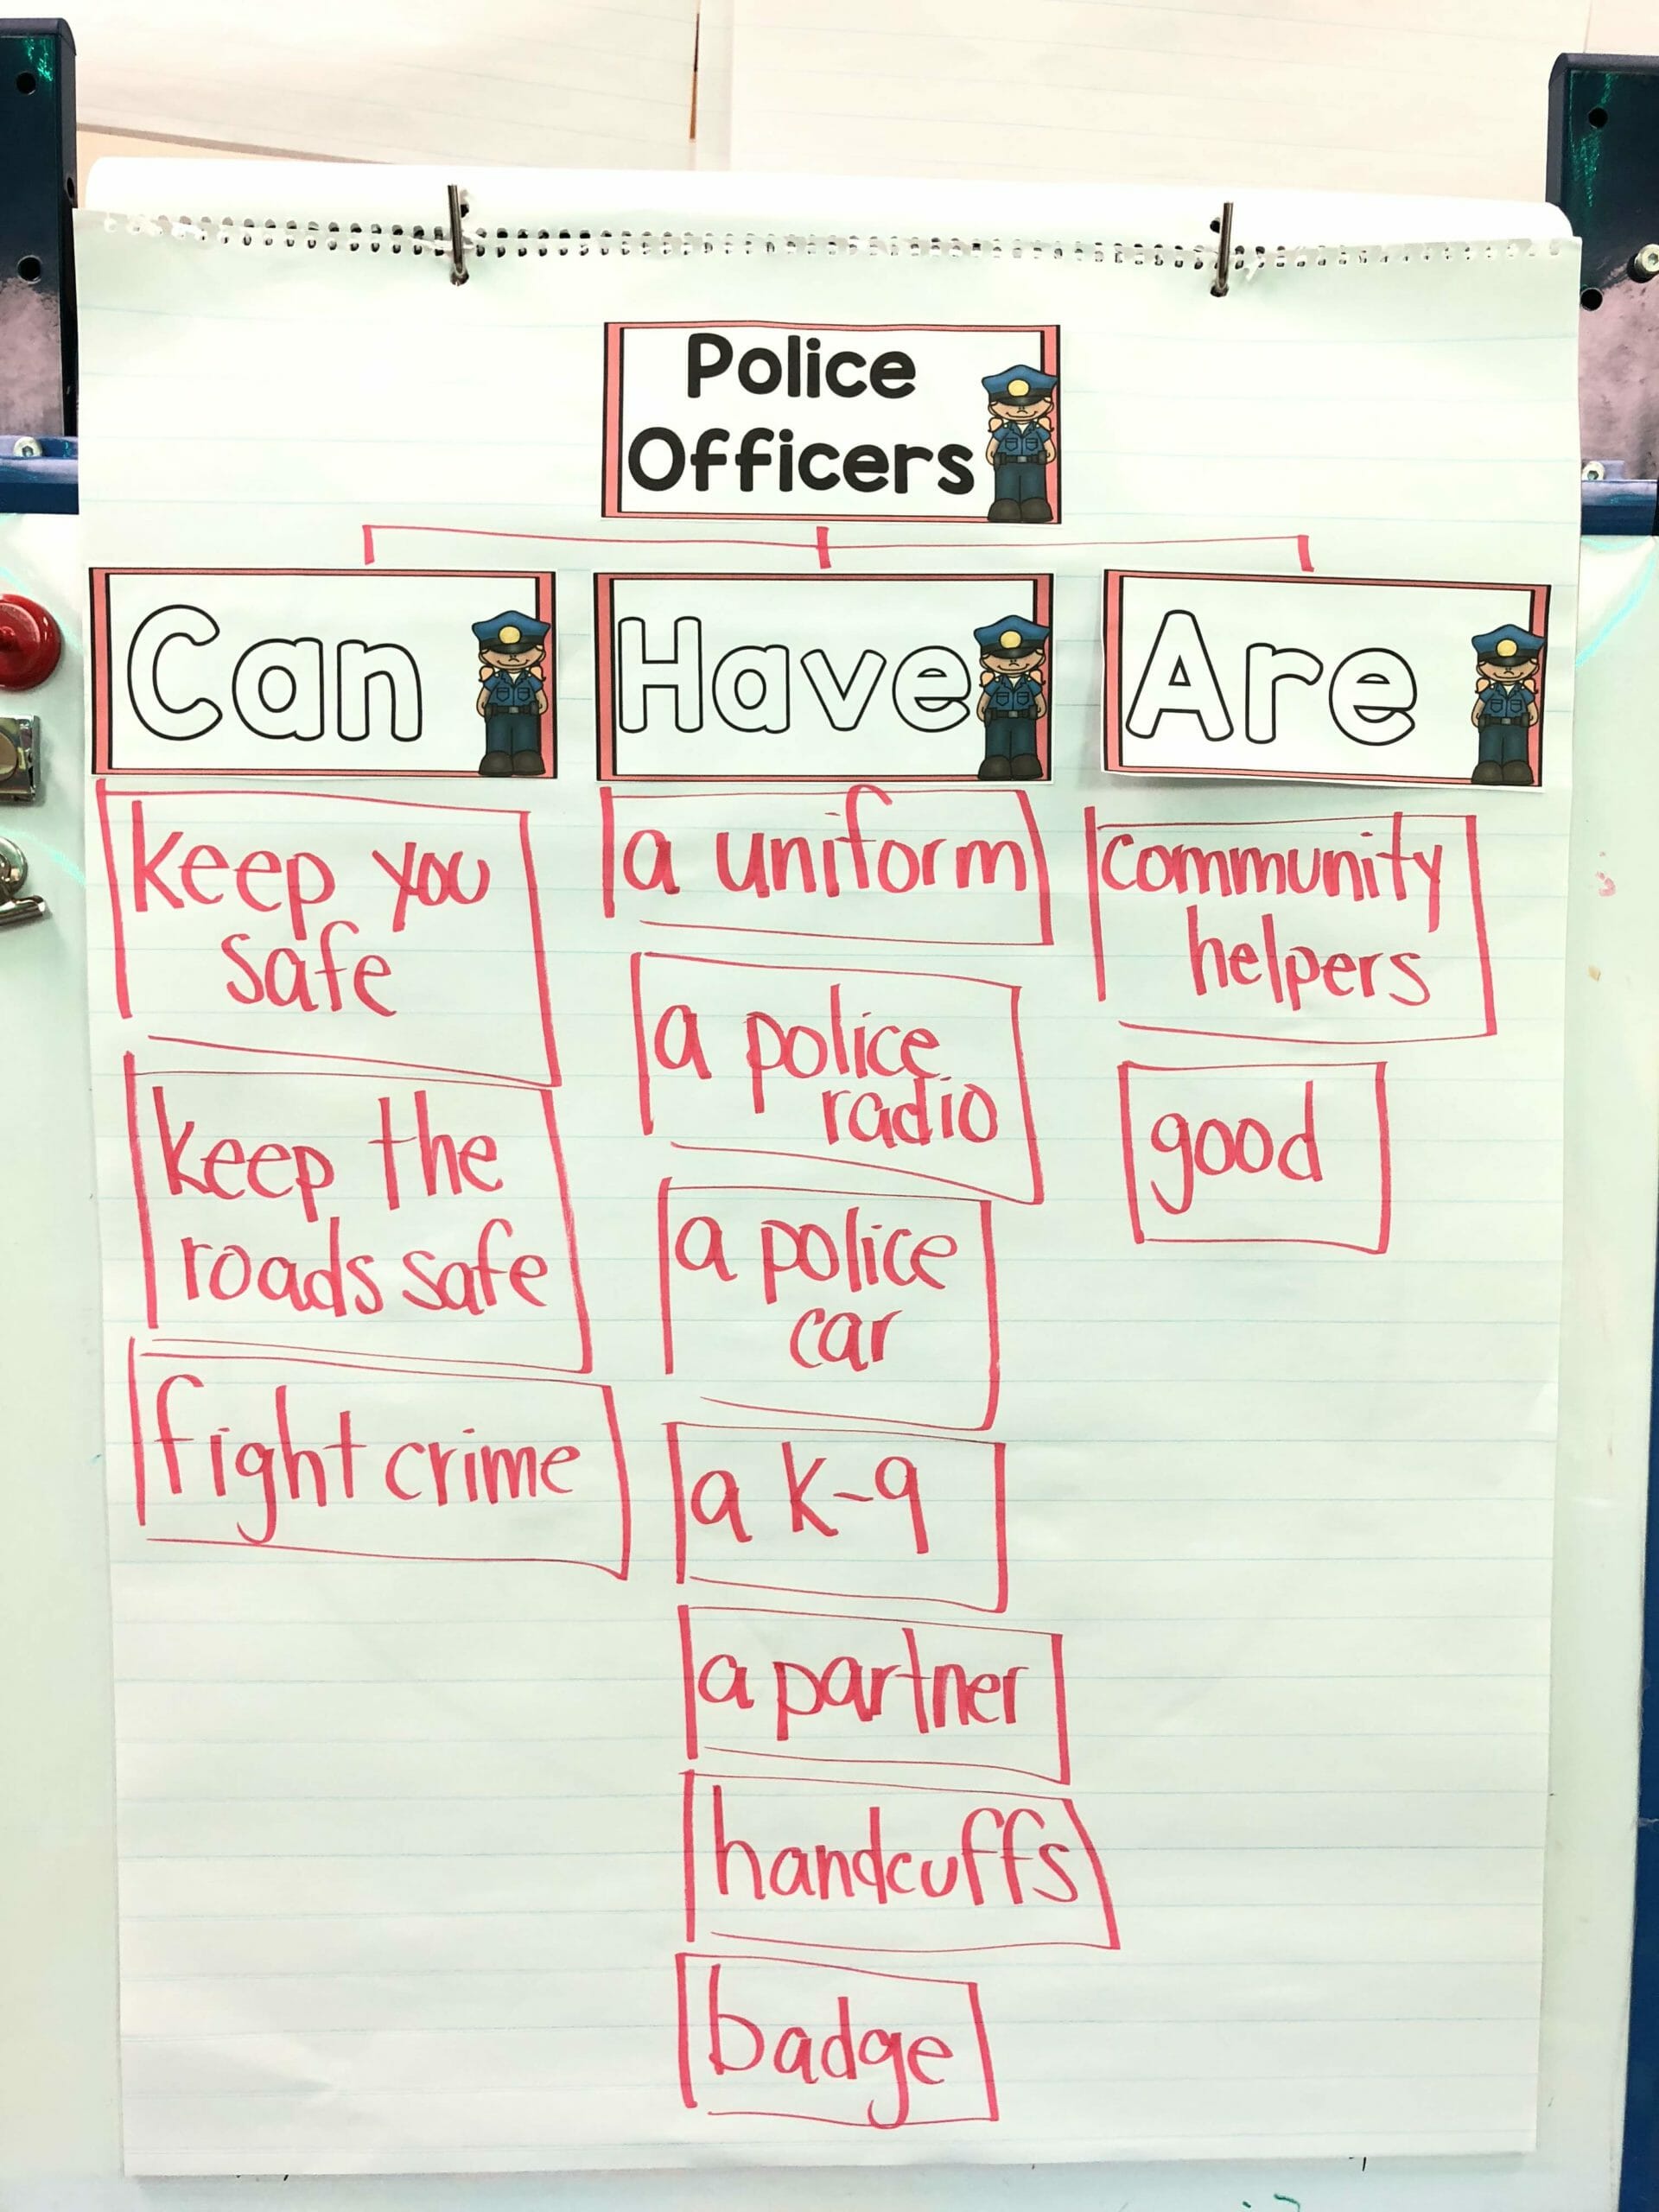 Police
Officers
Can
Have
Are
keep you
safe
keep the
roads safe
fight crime
a uniform
a police
radio
a police
car
a k-9
a partner
handcuffs
badge
community
helpers
good